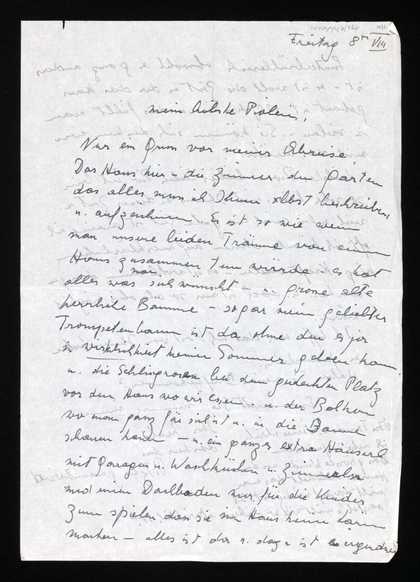 Freitag 8h
mein liebste
Nur ein Gruss vor meiner Abreise.
Das Haus hier u. die Zimmer den Garten
das alles muss ich Ihnen selbst beschreiben
u. aufzeichnen. Es ist so wie wenn
man unsere beiden Träume von einem
Haus zusammen tun würde. es hat
alles was man sich wünscht – u. grosse alte
herrliche Bäume – sogar mein geliebter
Trompetenbaum ist da ohne den es für
in wirklichkeit keinen Sommer geben kann
u. die Schlingrosen bei dem gedeckten Platz
vor dem Haus wo wir essen u. der Balkon
wo man ganz für sich ist u. in die Bäume
schauen kann – u. ein ganzes extra Häuserl
mit Garagen u. Waschküchen u. Zimmer
und ein Dachboden nur für die Kinder
zum spielen dass sie im Haus keinen Lärm
machen – alles ist da u. dazu ist es irgendwie